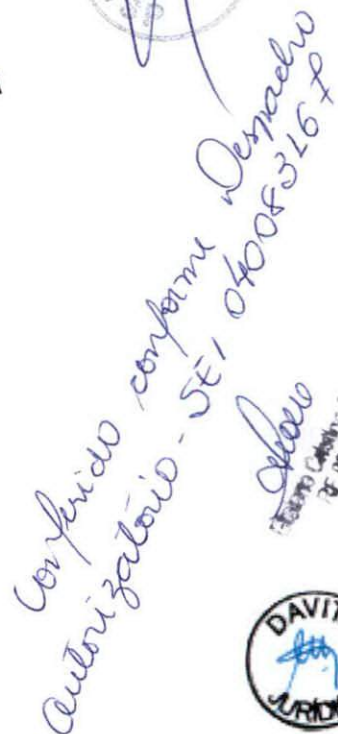 Conferido conforme Despacho
autorizatório - SEI 040083167
DAVIT
JURÍDI